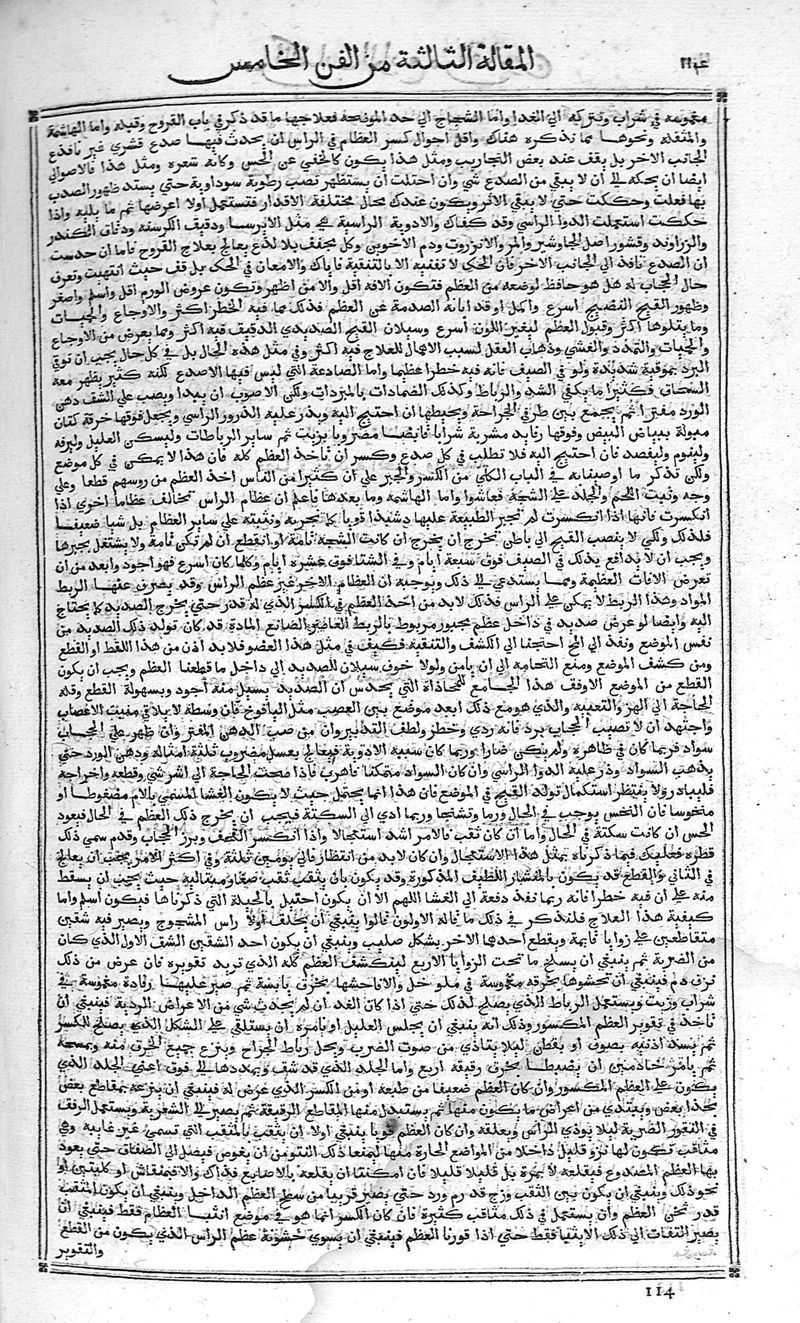 المقالة الثالثة من الفن الخامس
مغموسة في شراب وتتركه الي الغد واما الشجاج الي حد الموضحة فعلاجها ما قد ذكر في باب القروح وقبله واما الهاشمة
والمنقلة ونحوها مما نذكره هناك واقل احوال كسر العظام في الراس ان يحدث فيها صدع قشري غير نافذ الي
الجانب الاخر بل يقف عند بعض التجاريب ومثل هذا يكون كالخفي عن الحس وكانه شعره ومثل هذا فالاصوابي
ايضا ان يحكه الي ان لا يبقي من الصدع شي وان احتلت ان يستظهر تصب رطوبة سوداوية حتي يستد ظهور الصدع
بها فعلت وحككت حتي لا يبقي الاثر ويكون عندك محال مختلفة الاقدار فتستعمل اولا اعرضها ثم ما يليه واذا
حككت استعملت الدوا الراسي وقد كفاك والادوية الراسية هي مثل الايرسا ودقيق الكرسنة ودقاق الكندر
والزراوند وقشور اصل الجاوشير والمر والانزروت ودم الاخوين وكل مجفف بلا لذع يعالج بعلاج القروح فاما ان حدست
ان الصدع نافذ الي الجانب الاخر فان الحك لا تغنيه الا بالتنقية فاياك والامعان في الحك بل قف حيث انتهيت وتعرف
حال الحجاب له هل هو حافظ لوضعه من العظم فتكون الافه اقل والامن اظهر وتكون عروض الورم اقل واسلم واصغر
وظهور القيح النضيج اسرع واكمل او قد ابانه الصدمة عن العظم فذلك مما فيه الخطر اكثر والاوجاع والحميات
وما يتلوها اكثر وقبول العظم ليغير اللون اسرع وسيلان القيح الصديدي الدقيق فيه اكثر وما يعرض من الاوجاع
والحميات والتمدد والغشي وذهاب العقل لسبب الاهمال للعلاج فيه اكثر وفي مثل هذه الحال بل في كل حال يجب ان توقي
البرد بموقية شديدة ولو في الصيف فانه فيه خطر عظيما واما الصادعة التي ليس فيها الاصدع لكنه كثير يظهر معه
السمحاق فكثيرا ما يكفي الشد والرباط وكذلك الضمادات بالمبردات ولكن الاصوب ان يبدا ويصب علي الشف دهن
الورد مفترا ثم يجمع بين طرفي الجراحة ويخيطها ان احتيج اليه ويذر عليه الذرور الراسي ويجعل فوقها خرقة كتان
مبلولة ببياض البيض وفوقها رفايد مشربة شرابا قابضا مضروبا بزيت ثم ساير الرباطات وليسكن العليل وليرفه
ولينوم وليفصد فان احتيج اليه فلا تطلب في كل صدع وكسر ان تاخذ العظم كله فان هذا لا يمكن في كل موضع
ولكن تذكر ما اوصيناه في الباب الكلي من الكسر والجبر علي ان كثيرا من الناس اخذ العظم من روسهم قطعا وعلي
وجه ونبت اللحم والجلد علي الشجة فعاشوا واما الهاشمه وما بعدها فاعلم ان عظام الراس تخالف عظاما اخري اذا
انكسرت فانها اذا انكسرت لم تجبر الطبيعة عليها دشبذا قويا كما تجريه وتثبته علي ساير العظام بل شيا ضعيفا
فلذلك ولكي لا ينصب القيح الي باطن تخرج ان يخرج ان كانت الشجة تامة او انقطع ان لم تكن تامة ولا يشتغل بجبرها
ويجب ان لا يدافع بذلك في الصيف فوق سبعة ايام وفي الشتا فوق عشره ايام وكلما كان اسرع فهو اجود وابعد من ان
تعرض الافات العظيمة ومما يستدعي الي ذلك ويوجبه ان العظام الاخر غير عظم الراس وقد يصرف عنها الربط
المواد وهذا الربط لا يمكن علي الراس فذلك لابد من اخذ العظم في الكسر الذي له قدر حتي يخرج الصديد كما يحتاج
اليه وايضا لو عرض صديد في داخل عظم مجبور مربوط بالربط العاصر المانع المادة قد كان تولد ذلك الصديد من
نفس الموضع ونفذ الي المخ احتجنا الي الكشف والتنقية فكيف في مثل هذا العضو فلا بد اذن من هذا اللقط او القطع
ومن كشف الموضع ومنع التحامه الي ان يامن ولولا خوف سيلان الصديد الي داخل ما قطعنا العظم ويجب ان يكون
القطع من الموضع الاوفق هذا الجامع للمحاذاة التي يحدس ان الصديد يسيل منه اجود وبسهولة القطع وقله
الحاجة الي الهز والتعنيه والذي هو مع ذلك ابعد موضع بين العصب مثل اليافوخ فان وسطه لا يلاقي منبت الاعصاب
واجتهد ان لا تصيب الحجاب برد فانه ردي وخطر ولطف التدبير وان من صب الدهن المفتر وان ظهر علي الحجاب
سواد فربما كان في ظاهره ولم يكن ضارا وربما كان سببه الادوية فيعالج بعسل مضروب ثلثة امثاله ودهن الورد حتي
يذهب السواد وذر عليه الدوا الراسي وان كان السواد متمكنا فاهرب فاذا صحت الحاجة الي نشر شي وقطعه واخراجه
فليبادر ولا ينتظر استكمال تولد القيح في الموضع فان هذا انما يحتمل حيث لا يكون الغشا المسمي بالام مضغوطا او
منخوسا فان النخس يوجب في الحال ورما وتشنجا وربما ادي الي السكتة فيجب ان يخرج ذلك العظم في الحال فيعود
الحس ان كانت سكتة في الحال واما ان كان ثقب فالامر اشد استعجالا واذا انكسر القحف وبرز الحجاب وقدم سمي ذلك
قطره فعليك فيما ذكرناه بمثل هذا الاستعجال وان كان لابد من انتظار فالي يومين ثلثة وفي اكثر الامر يجب ان يعالج
في الثاني والقطع قد يكون بالمنشار اللطيف المذكورة وقد يكون بان يثقب ثقب صغار متتالية حيث يجب ان يسقط
منه علي ان فيه خطرا فانه ربما نفذ دفعة الي الغشا اللهم الا ان يكون احتيل بالحيلة التي ذكرناها فيكون اسلم واما
كيفية هذا العلاج فلنذكر في ذلك ما قاله الاولون قالوا ينبغي ان يحلف اولا راس المشجوج ويصير فيه شقين
متقاطعين علي زوايا قايمة ويقطع احدهما الاخر بشكل صليب وينبغي ان يكون احد الشقين الشق الاول الذي كان
من الضربة ثم ينبغي ان يسلخ ما تحت الزوايا الاربع لينكشف العظم كله الذي تريد تقويره فان عرض من ذلك
نزف دم فينبغي ان تحشوها بخرقه مغموسة في ملو خل والا فاحشها بخرق يابسة ثم صير عليها رفادة مغموسة في
شراب وزيت ويستعمل الرباط الذي يصلح لذلك حتي اذا كان الغد ان لم يحدث شي من الاعراض الردية فينبغي ان
ناخذ في تقوير العظم المكسور وذلك انه ينبغي ان يجلس العليل او نامره ان يستلقي علي الشكل الذي يصلح للكسر
ثم يسد اذنيه بصوف او بقطن ليلا يتاذي من صوت الضرب ويحل رباط الجراح وينزع جميع الخرق منه ويمسحه
ثم يامر خادمين ان يضبطا بخرق رقيقة اربع واما الجلد الذي قد شف ويمددها الي فوق اعني الجلد الذي
يكون علي العظم المكسور وان كان العظم ضعيفا من طبعه او من الكسر الذي عرض له فينبغي ان ينزعه بمقاطع بعض
بحذا بعض ويبتدي من اعراض ما يكون منها ثم يستبدل منها المقاطع الرقيقة ثم يصير الي الشعرية ويستعمل الرفق
في النقور الضربة ليلا يوذي الراس ويعلقه وان كان العظم قويا ينبغي اولا ان يثقب بالمثقب التي تسمي غير غايبة وهي
مثاقب تكون لها نتو قليل داخلا من المواضع الحارة منها ليمنعها ذلك النتو من ان يغوص فيصل الي الصفاق حتي يعود
بها العظم المصدوع فيقلعه لا بمرة بل قليلا قليلا فان امكننا ان يقلعه بالاصابع فذاك والا فبمنقاش او كلبتين او
نحو ذلك وينبغي ان يكون بين الثقب وزج قد رم ورد حتي يصير قريبا من سطح العظم الداخل وينبغي ان يكون المثقب
قدر ثخن العظم وان يستعمل في ذلك مثاقب كثيرة فان كان الكسر انما هو في موضع انثنا العظام فقط فينبغي ان
يصير الثقات الي ذلك الانثنا فقط حتي اذا قورنا العظم فينبغي ان يسوي خشونة عظم الراس الذي يكون من القطع
والتقوير
114